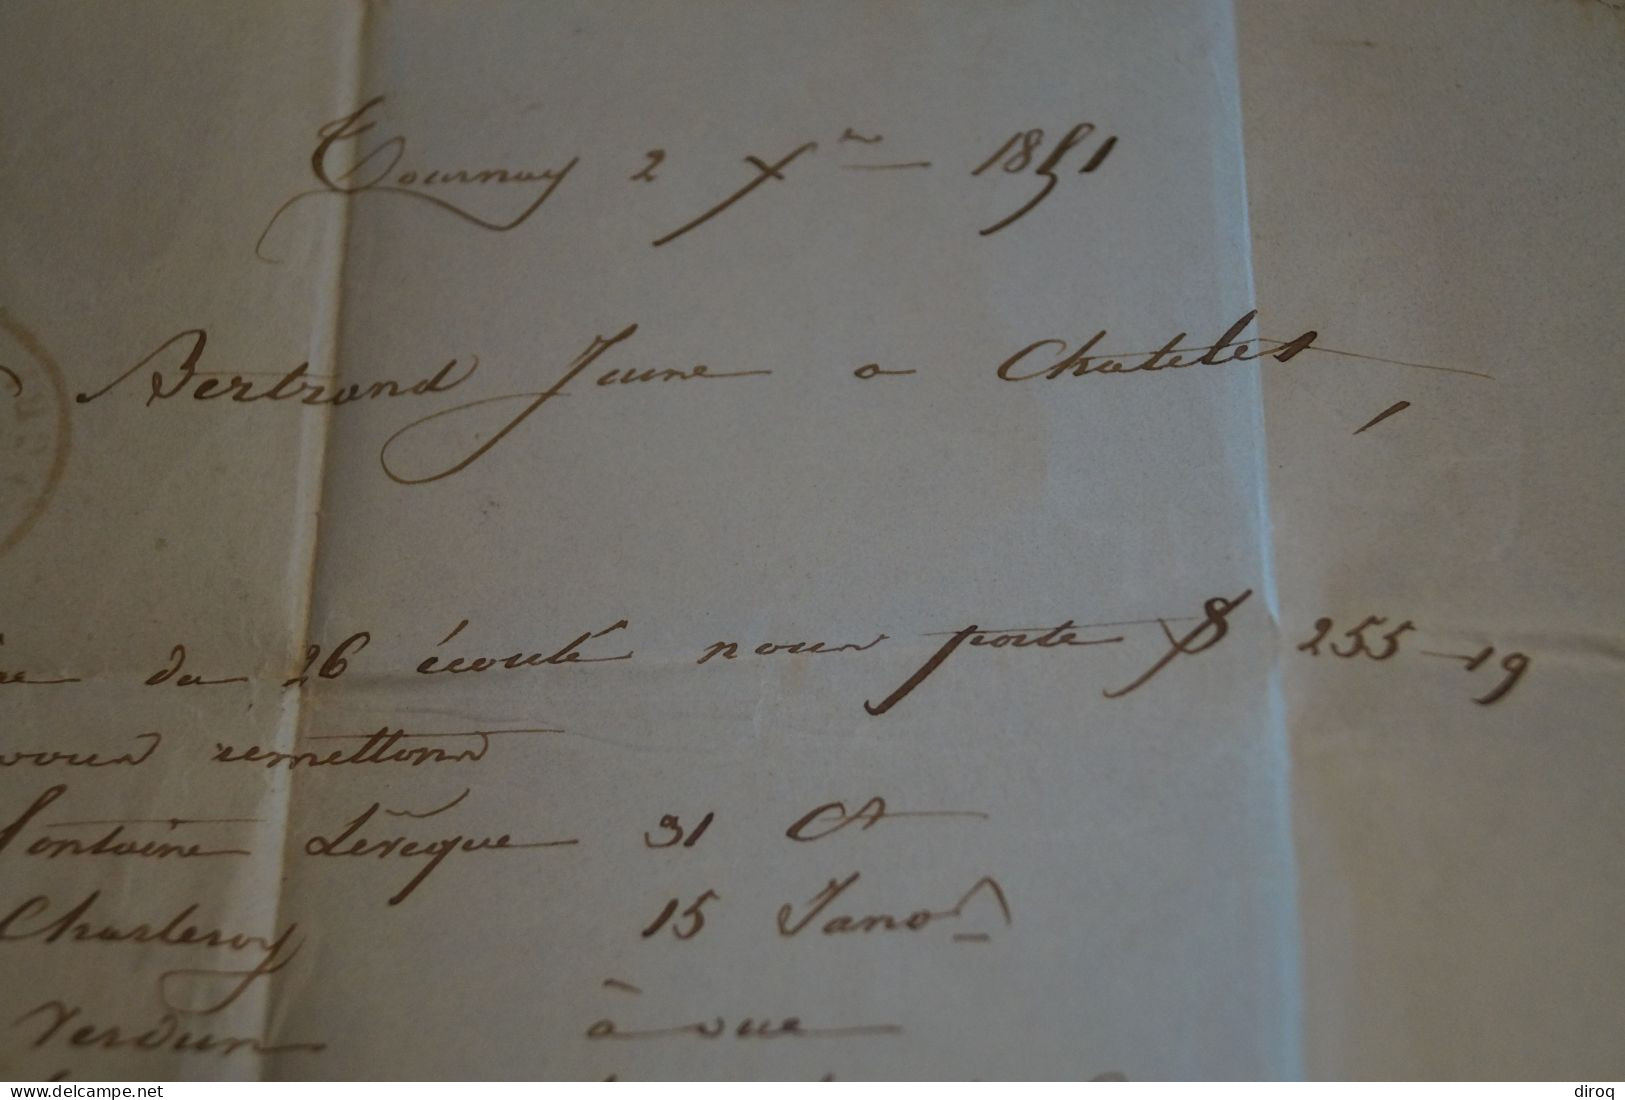 Tournay 2 Xre 1851
Bertrand Jeune a Chatelet
du 26 écoulé nous porte $ 255-19
vous remettons
fontaine Lévêque 31 Ct
Charleroy 15 Janvr
Verdun à vue
www.delcampe.net
diroq